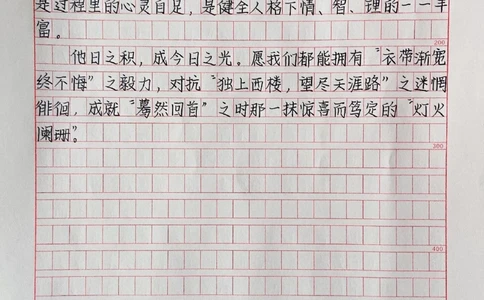 是过程里的心灵自足，是健全人格下情、智、理的一一丰
富。
200
他日之积，成今日之光。愿我们都能拥有“衣带渐宽
终不悔”之毅力，对抗“独上西楼，望尽天涯路”之迷惘
徘徊，成就“蓦然回首”之时那一抹惊喜而笃定的“灯火
阑珊”。
300
400